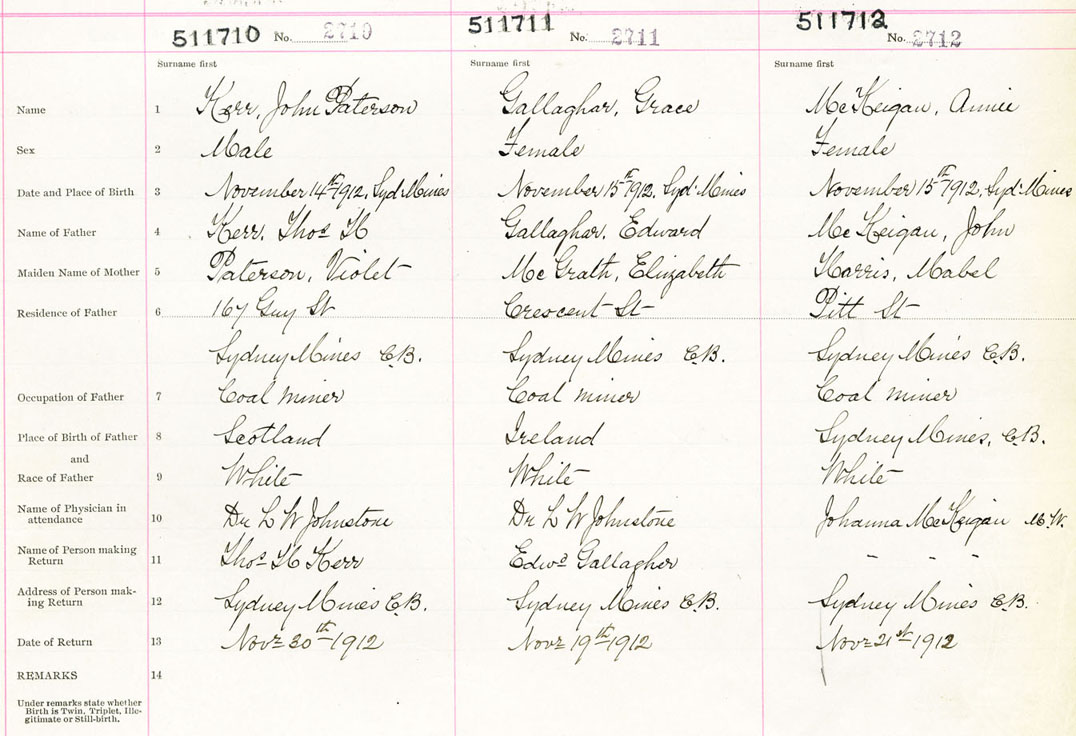 511710 No. 2710 511711 No. 2711 511712 No. 2712
Surname first Surname first Surname first
Name 1 Kerr, John Paterson Gallaghar, Grace McKeigan, Annie
Sex 2 Male Female Female
Date and Place of Birth 3 November 14th 1912, Syd. Mines November 15th 1912, Syd. Mines November 15th 1912, Syd. Mines
Name of Father 4 Kerr, Thos H Gallaghar, Edward McKeigan, John
Maiden Name of Mother 5 Paterson, Violet McGrath, Elizabeth Harris, Mabel
Residence of Father 6 167 Guy St Crescent St Pitt St
Sydney Mines C.B. Sydney Mines C.B. Sydney Mines C.B.
Occupation of Father 7 Coal miner Coal miner Coal miner
Place of Birth of Father 8 Scotland Ireland Sydney Mines, C.B.
and
Race of Father 9 White White White
Name of Physician in
attendance 10 Dr L W Johnstone Dr L W Johnstone Johanna McKeigan M.W.
Name of Person making
Return 11 Thos H Kerr Edwd Gallagher - - -
Address of Person mak-
ing Return 12 Sydney Mines C.B. Sydney Mines C.B. Sydney Mines C.B.
Date of Return 13 Novr 30th 1912 Novr 19th 1912 Novr 21st 1912
REMARKS 14
Under remarks state whether
Birth is Twin, Triplet, Ille-
gitimate or Still-birth.